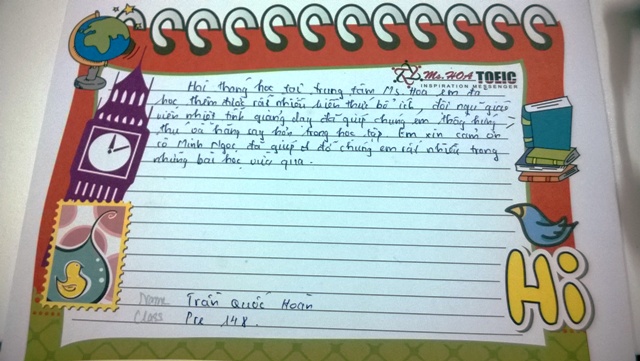 Ms. HOA TOEIC
INSPIRATION MESSENGER
Hai tháng học tại trung tâm Ms. Hoa em đã
học thêm được rất nhiều kiến thức bổ ích, đội ngũ giáo
viên nhiệt tình giảng dạy đã giúp chúng em thấy hứng
thú và hăng say hơn trong học tập. Em xin cảm ơn
cô Minh Ngọc đã giúp đỡ chúng em rất nhiều trong
những bài học vừa qua.
Hi
Name Trần Quốc Hoàn
Class Pre 148.